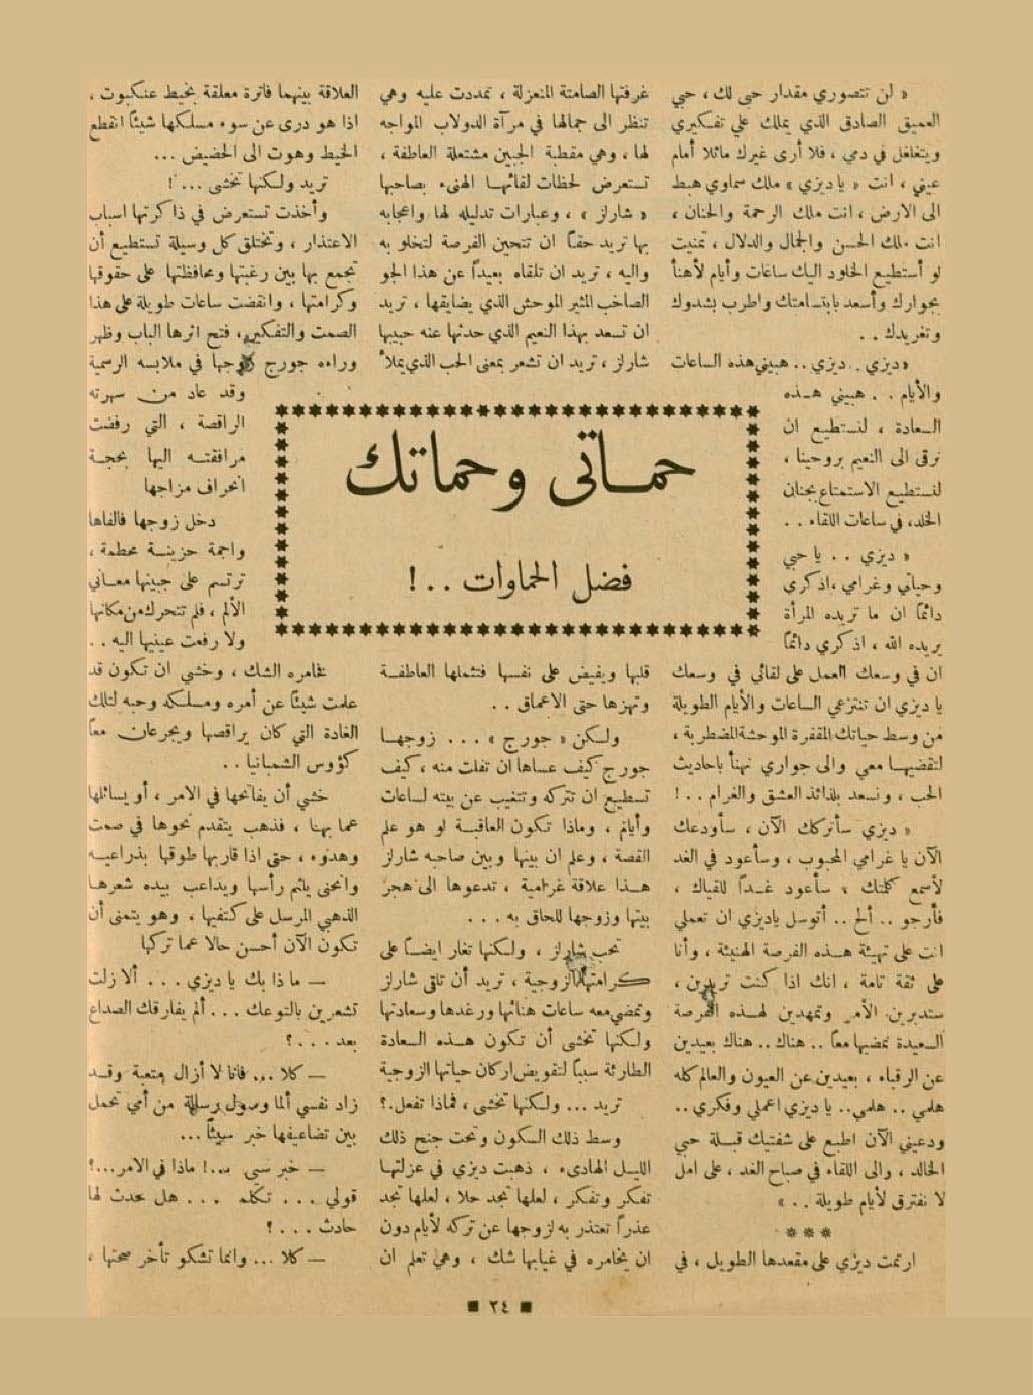 حماتي وحماتك
فضل الحماوات . . !
« لن تتصوري مقدار حبى لك ، حبي
العميق الصادق الذي يملك علي تفكيري
ويتغلغل في دمي ، فلا أرى غيرك ماثلا أمام
عيني ، انت « يا ديزي » ملك سماوي هبط
الى الارض ، انت ملك الرحمة والحنان ،
انت ملك الحسن والجمال والدلال ، تمنيت
لو أستطيع الخلود اليك ساعات وأيام لأهنأ
بجوارك وأسعد بابتسامتك واطرب بشدوك
وتغريدك . .
« ديزي . . ديزي . . هبيني هذه الساعات
والأيام . . هبيني هذه
السعادة ، لنستطيع ان
نرقى الى النعيم بروحينا ،
لنستطيع الاستمتاع بجنان
الخلد، في ساعات اللقاء . .
« ديزي . . يا حبي
وحياتي وغرامي ، اذكري
دائما ان ما تريده المرأة
يريده الله ، اذكري دائما
ان في وسعك العمل على لقائي في وسعك
يا ديزي ان تنتزعي الساعات والأيام الطويلة
من وسط حياتك المقفرة الموحشة المضطربة ،
لتقضيها معي والى جواري نهنأ باحاديث
الحب ، ونسعد بلذائذ العشق والغرام . . !
« ديزي سأتركك الآن ، سأودعك
الآن يا غرامي المحبوب ، وسأعود في الغد
لأسمع كلمتك ، سأعود غداً للقياك ،
فأرجو . . ألح . . أتوسل ياديزي ان تعملي
انت على تهيئة هذه الفرصة الهنيئة ، وأنا
على ثقة تامة ، انك اذا كنت تريدين ،
ستدبرين الأمر وتمهدين لهذه الفرصة
السعيدة نمضيها معاً . . هناك . . هناك بعيدين
عن الرقباء ، بعيدين عن العيون والعالم كله
هلمي . . هلمي . . يا ديزي اعملي وفكري . .
ودعيني الآن اطبع على شفتيك قبلة حبي
الخالد ، والى اللقاء في صباح الغد ، على امل
لا نفترق لأيام طويلة . . »
***
ارتمت ديزي على مقعدها الطويل ، في
غرفتها الصامتة المنعزلة ، تمددت عليه وهي
تنظر الى جمالها في مرآة الدولاب المواجه
لها ، وهي مقطبة الجبين مشتعلة العاطفة ،
تستعرض لحظات لقائها الهنىء بصاحبها
« شارلز » ، وعبارات تدليله لها واعجابه
بها تريد حقاً ان تتحين الفرصة لتخلو به
واليه ، تريد ان تلقاه بعيداً عن هذا الجو
الصاخب المثير الموحش الذي يضايقها ، تريد
ان تسعد بهذا النعيم الذي حدثها عنه حبيبها
شارلز ، تريد ان تشعر بمعنى الحب الذي يملأ
قلبها ويفيض على نفسها فتشملها العاطفة
وتهزها حتى الاعماق . .
ولكن « جورج » . . . زوجها
جورج كيف عساها ان تفلت منه ، كيف
تستطيع ان تتركه وتتغيب عن بيته لساعات
وأيام ، وماذا تكون العاقبة لو هو علم
القصة ، وعلم ان بينها وبين صاحبه شارلز
هذا علاقة غرامية ، تدعوها الى هجر
بيتها وزوجها للحاق به . . .
تحب شارلز ، ولكنها تغار ايضاً على
كرامتها الزوجية ، تريد أن تلقى شارلز
وتمضي معه ساعات هنائها ورغدها وسعادتها
ولكنها تخشى أن تكون هذه السعادة
الطارئة سبباً لتقويض اركان حياتها الزوجية
تريد ... ولكنها تخشى ، فماذا تفعل .؟
وسط ذلك السكون وتحت جنح ذلك
الليل الهادىء ، ذهبت ديزي في عزلتها
تفكر وتفكر ، لعلها تجد حلا ، لعلها تجد
عذراً تعتذر به لزوجها عن تركه لأيام دون
ان يخامره في غيابها شك ، وهي تعلم ان
العلاقة بينهما فاترة معلقة بخيط عنكبوت ،
اذا هو درى عن سوء مسلكها شيئاً انقطع
الخيط وهوت الى الحضيض ...
تريد ولكنها تخشى ... !
وأخذت تستعرض في ذاكرتها اسباب
الاعتذار ، وتختلق كل وسيلة تستطيع أن
تجمع بها بين رغبتها ومحافظتها على حقوقها
وكرامتها ، وانقضت ساعات طويلة على هذا
الصمت والتفكير، فتح اثرها الباب وظهر
وراءه جورج زوجها في ملابسه الرسمية
وقد عاد من سهرته
الراقصة ، التي رفضت
مرافقته اليها بحجة
انحراف مزاجها
دخل زوجها فالفاها
واجمة حزينة محطمة ،
ترتسم على جبينها معاني
الألم ، فلم تتحرك من مكانها
ولا رفعت عينيها اليه . .
فخامره الشك ، وخشي ان تكون قد
علمت شيئاً عن أمره ومسلكه وحبه لتلك
الغادة التي كان يراقصها ويجرعان معاً
كؤوس الشمبانيا . .
خشي أن يفاتحها في الامر ، أو يسائلها
عما بهنا ، فذهب يتقدم نحوها في صمت
وهدوء ، حتى اذا قاربها طوقها بذراعيه
وانحنى يلثم رأسها ويداعب بيده شعرها
الذهبي المرسل على كتفيها ، وهو يتمنى أن
تكون الآن أحسن حالا عما تركها
— ماذا بك يا ديزي . . . ألا زلت
تشعرين بالتوعك . . . ألم يفارقك الصداع
بعد . . . ؟
— كلا ... فانا لا أزال متعبة وقد
زاد نفسي ألما وصول رسالة من أمي تحمل
بين تضاعيفها خبر سيئاً ...
— خبر سيى ...! ماذا في الامر...؟
قولي . . . تكلم . . . هل حدث لها
حادث . . . ؟
— كلا ... وانما تشكو تأخر صحتها ،
٢٤